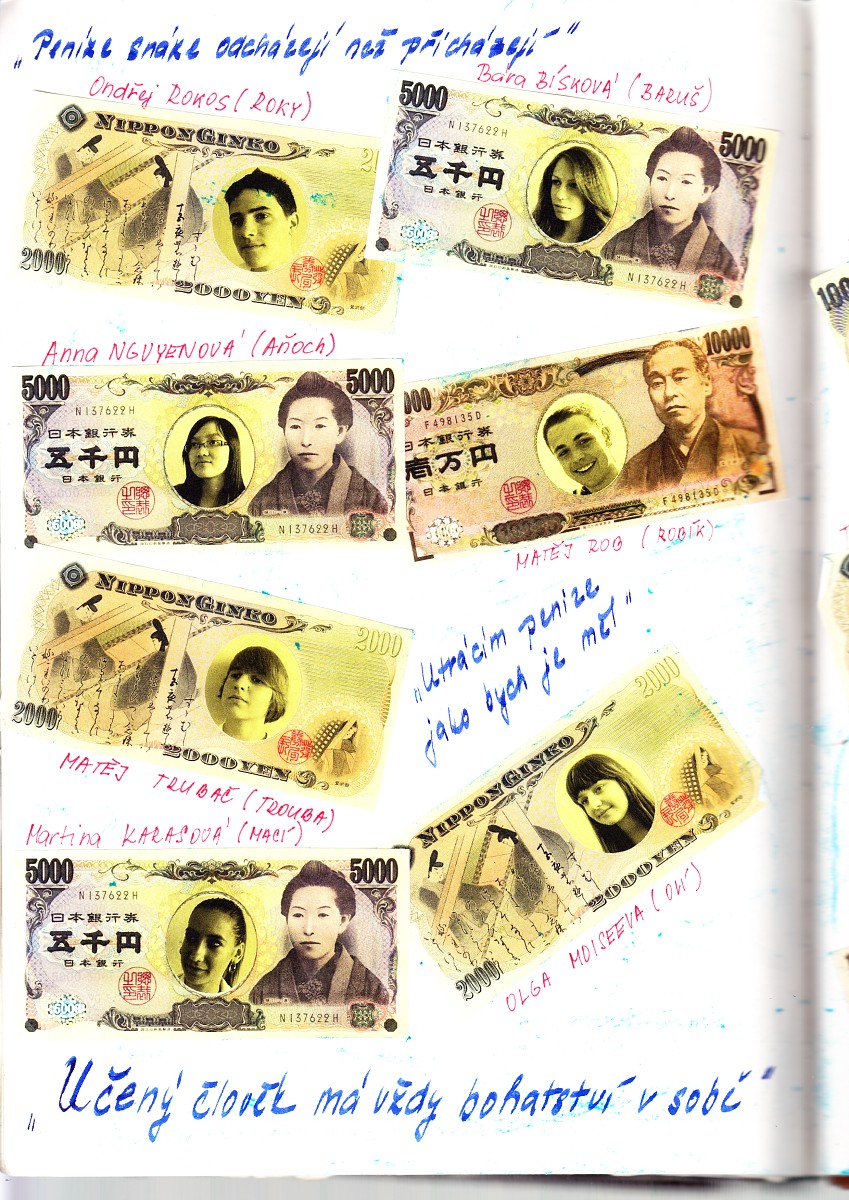 „Peníze snáze odcházejí než přicházejí"
Ondřej ROKOS (ROKY)
Bára BÍSKOVÁ (BARUŠ)
NIPPON GINKO
2000
2000 YEN
5000
N137622H
5000
日本銀行券
五千円
日本銀行
N137622H
Anna NGUYENOVÁ (AŇOCH)
5000
5000
N137622H
日本銀行券
五千円
日本銀行
N137622H
10000
000
F498135D
日本銀行券
壱万円
日本銀行
F498135D
MATĚJ ROB (ROBÍK)
NIPPON GINKO
2000
2000
2000 YEN
MATĚJ TRUBAČ (TROUBA)
„Utrácím peníze
jako bych je měl"
2000
NIPPON GINKO
2000 YEN
2000
OLGA MOISEEVA (OLÍ)
Martina KARASOVÁ (MACÍ)
5000
5000
N137622H
日本銀行券
五千円
日本銀行
N137622H
„Učený člověk má vždy bohatství v sobě"